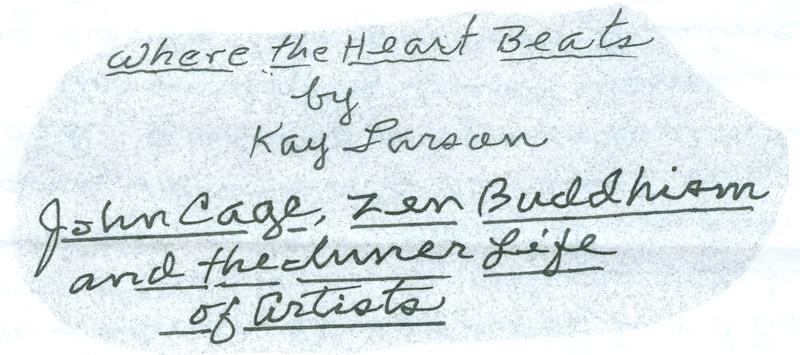 Where the Heart Beats
by
Kay Larson
John Cage, Zen Buddhism
and the Inner Life
of Artists